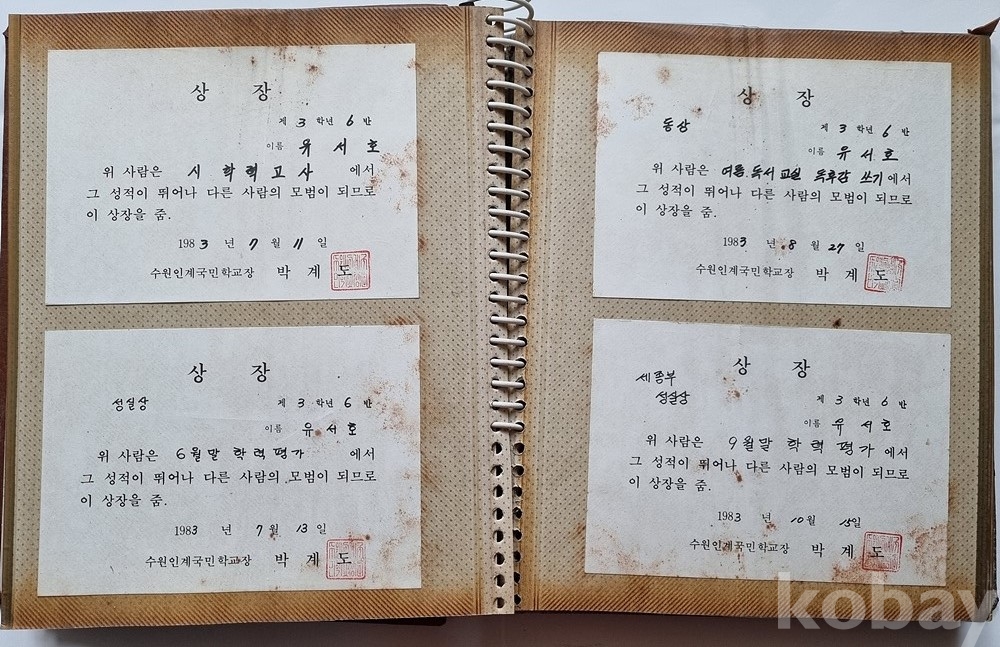 상 장
제 3 학년 6 반
이름 유 서 호
위 사람은 시 학력고사 에서
그 성적이 뛰어나 다른 사람의 모범이 되므로
이 상장을 줌.
1983 년 7 월 11 일
수원인계국민학교장 박 계 도
상 장
성실상 제 3 학년 6 반
이름 유 서 호
위 사람은 6월말 학력평가 에서
그 성적이 뛰어나 다른 사람의 모범이 되므로
이 상장을 줌.
1983 년 7 월 13 일
수원인계국민학교장 박 계 도
상 장
동상 제 3 학년 6 반
이름 유 서 호
위 사람은 여름 독서 교실 독후감 쓰기 에서
그 성적이 뛰어나 다른 사람의 모범이 되므로
이 상장을 줌.
1983 년 8 월 27 일
수원인계국민학교장 박 계 도
상 장
세종부
성실상 제 3 학년 6 반
이름 유 서 호
위 사람은 9월말 학력평가 에서
그 성적이 뛰어나 다른 사람의 모범이 되므로
이 상장을 줌.
1983 년 10 월 15 일
수원인계국민학교장 박 계 도
kobay